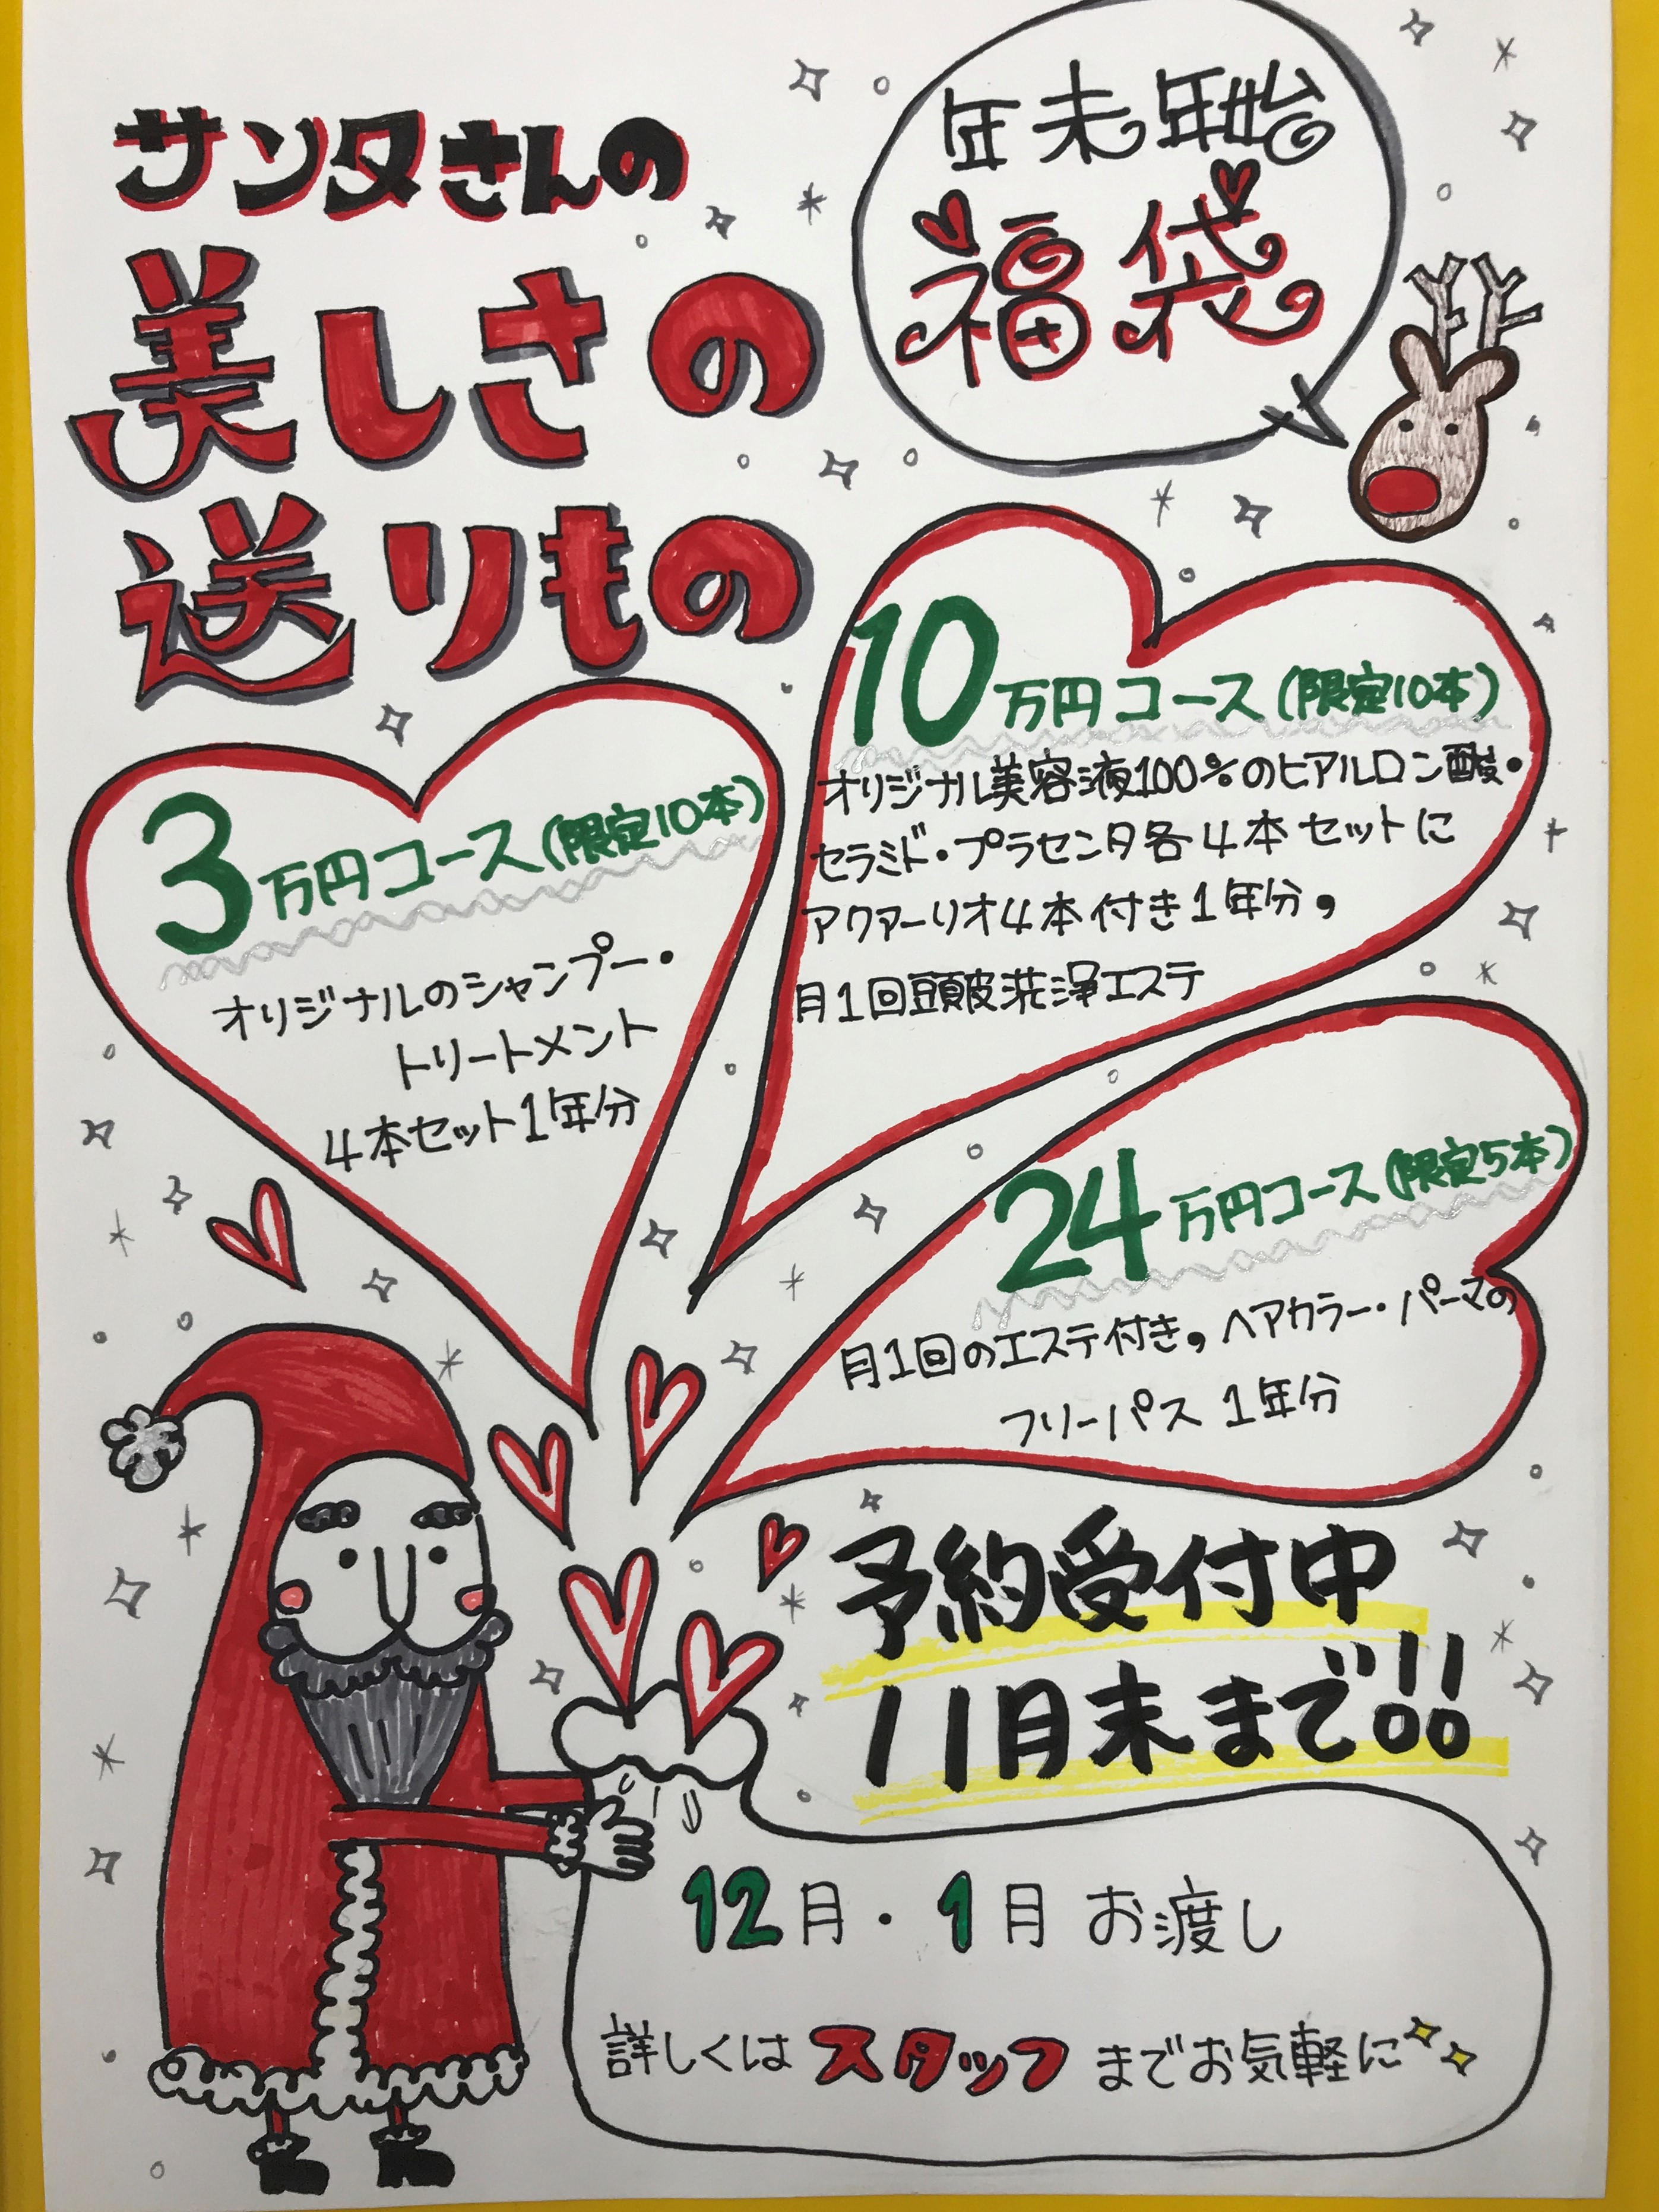 サンタさんの
美しさの
送りもの
年末年始
福袋
10万円コース(限定10本)
オリジナル美容液100%のヒアルロン酸・
セラミド・プラセンタ各4本セットに
アクアーリオ4本付き1年分,
月1回頭皮洗浄エステ
3万円コース(限定10本)
オリジナルのシャンプー・
トリートメント
4本セット1年分
24万円コース(限定5本)
月1回のエステ付き,ヘアカラー・パーマの
フリーパス 1年分
予約受付中
11月末まで!!
12月・1月 お渡し
詳しくはスタッフまでお気軽に